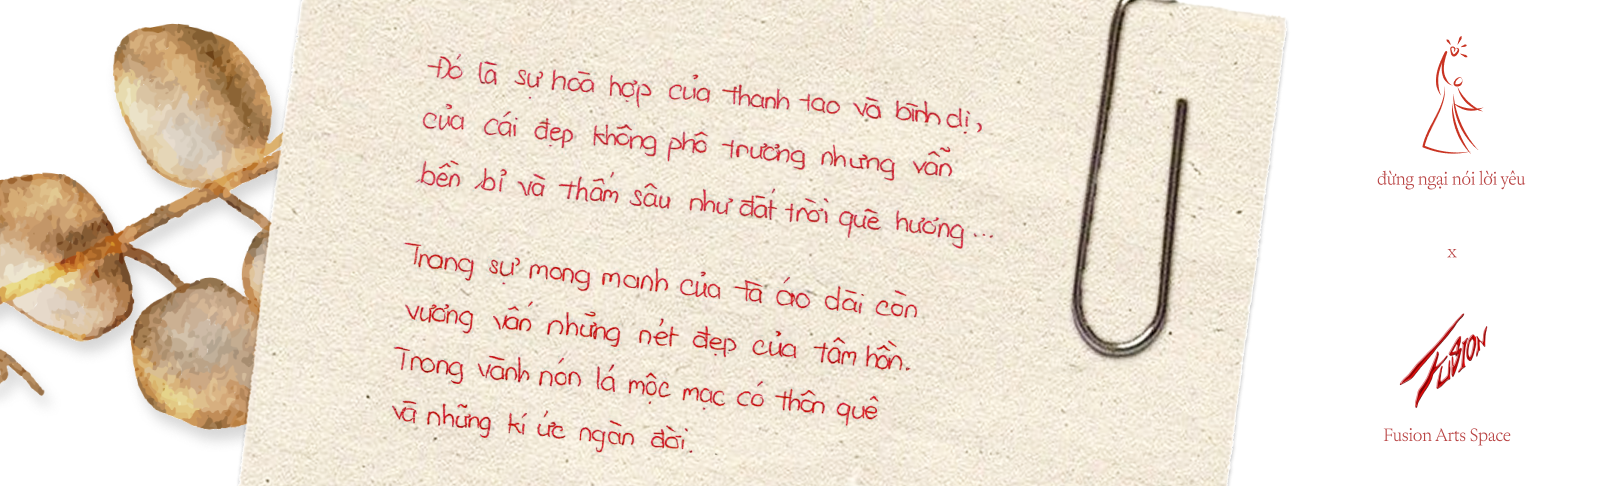 Đó là sự hoà hợp của thanh tao và bình dị,
của cái đẹp không phô trương nhưng vẫn
bền bỉ và thấm sâu như đất trời quê hương...
Trong sự mong manh của tà áo dài còn
vương vấn những nét đẹp của tâm hồn.
Trong vành nón lá mộc mạc có thôn quê
và những kí ức ngàn đời.
đừng ngại nói lời yêu
x
FUSION
Fusion Arts Space